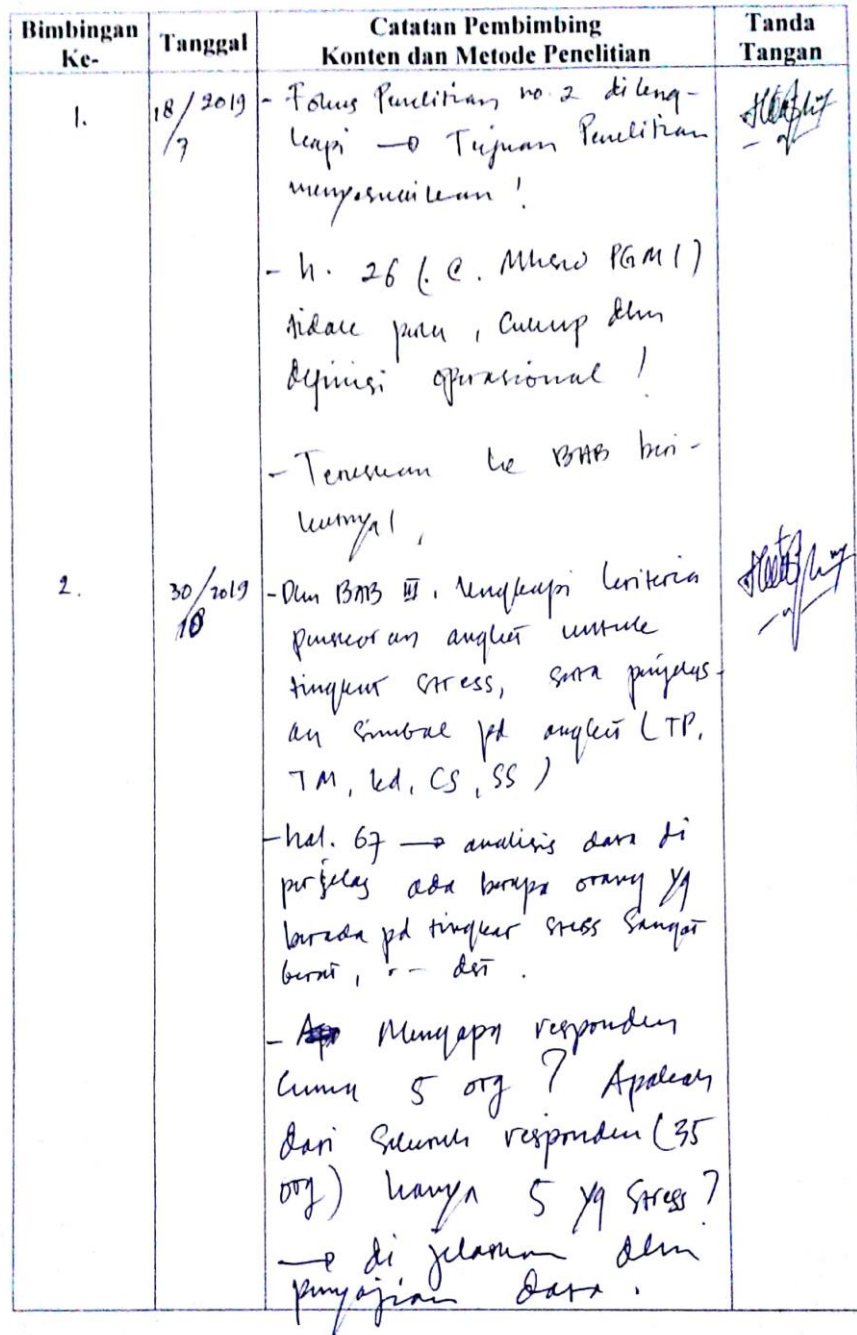 Bimbingan Ke- Tanggal Catatan Pembimbing Konten dan Metode Penelitian Tanda Tangan
1. 18/7 2019 - Fokus Penelitian no. 2 dileng-
kapi → Tujuan Penelitian
menyesuaikan !
- h. 26 (. C. Mhsw PGMI)
tidak perlu, cukup dlm
definisi operasional !
- Teruskan ke BAB beri-
kutnya !
2. 30/10 2019 - Dlm BAB III, lengkapi kriteria
penskoran angket untuk
tingkat stress, serta penjelas-
an simbol pd angket (TP,
TM, kd, CS, SS)
- hal. 67 → analisis data di
perjelas ada berapa orang yg
berada pd tingkat stress sangat
berat, -- dst.
- Mengapa responden
cuma 5 org ? Apakah
dari seluruh responden (35
org) hanya 5 yg stress ?
→ di jelaskan dlm
penyajian data.